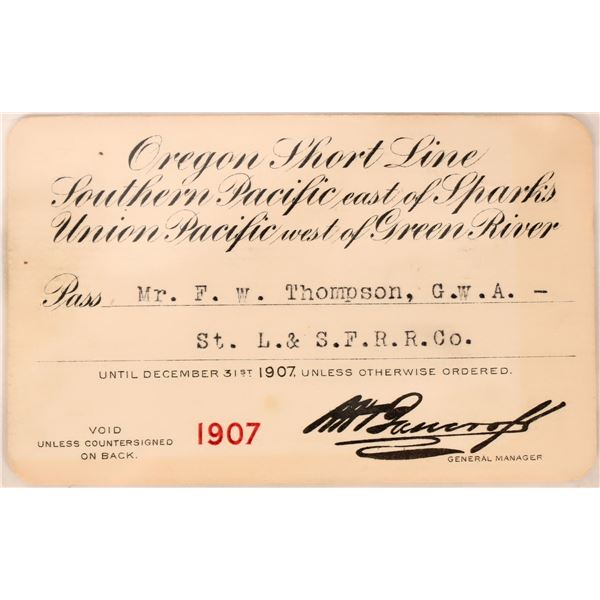 Oregon Short Line
Southern Pacific east of Sparks
Union Pacific west of Green River
Pass Mr. F. W. Thompson, G.W.A. -
St. L. & S.F.R.R.Co.
UNTIL DECEMBER 31ST 1907, UNLESS OTHERWISE ORDERED.
VOID
UNLESS COUNTERSIGNED
ON BACK.
1907
Bancroft
GENERAL MANAGER